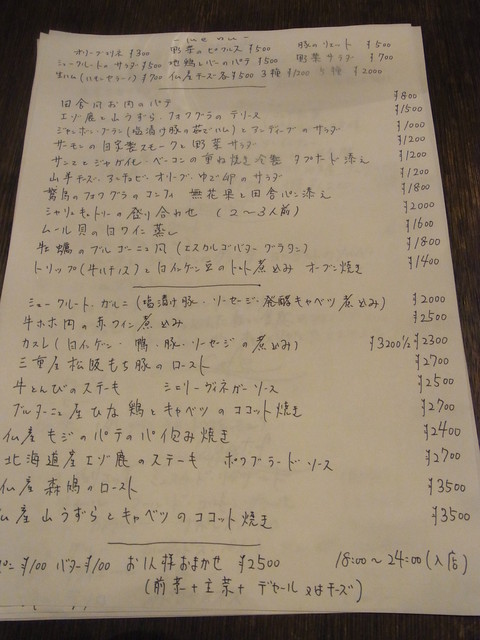 - menu -
オリーブマリネ ¥300 野菜のピクルス ¥500 豚のリエット ¥500
シュークルートのサラダ ¥500 地鶏とレバーのパテ ¥500 野菜サラダ ¥700
生ハム(ハモンセラーノ) ¥700 仏産チーズ各 ¥500 3種 ¥1200 5種 ¥2000
田舎風お肉のパテ ¥800
エゾ鹿と山うずら、フォワグラのテリーヌ ¥1500
ジャンボン・ブラン(塩漬け豚の茹でハム)とアンディーブのサラダ ¥1000
サーモンの自家製スモークと野菜サラダ ¥1200
サンマとジャガイモ・ベーコンの重ね焼き冷製 タプナード添え ¥1200
山羊チーズ、アンチョビ、オリーブ、ゆで卵のサラダ ¥1200
鴨のフォワグラのコンフィ 無花果と田舎パン添え ¥1800
シャリュキュトリーの盛り合わせ (2〜3人前) ¥2000
ムール貝の白ワイン蒸し ¥1600
牡蠣のブルゴーニュ風(エスカルゴバターグラタン) ¥1800
トリップ(牛ハチノス)と白インゲン豆のトマト煮込み オーブン焼き ¥1400
シュークルート・ガルニ(塩漬け豚・ソーセージ・発酵キャベツ煮込み) ¥2000
牛ホホ肉の赤ワイン煮込み ¥2500
カスレ(白インゲン・鴨・豚・ソーセージの煮込み) ¥3200 1/2 ¥2300
三重産松阪もち豚のロースト ¥2700
牛とんびのステーキ シェリーヴィネガーソース ¥2500
ブルターニュ産ひな鶏とキャベツのココット焼き ¥2700
仏産キジのパテのパイ包み焼き ¥2400
北海道産エゾ鹿のステーキ ポワブラードソース ¥2700
仏産森鳩のロースト ¥3500
仏産山うずらとキャベツのココット焼き ¥3500
パン ¥100 バター ¥100 お1人様おまかせ ¥2500 18:00〜24:00(入店)
(前菜+主菜+デセール又はチーズ)